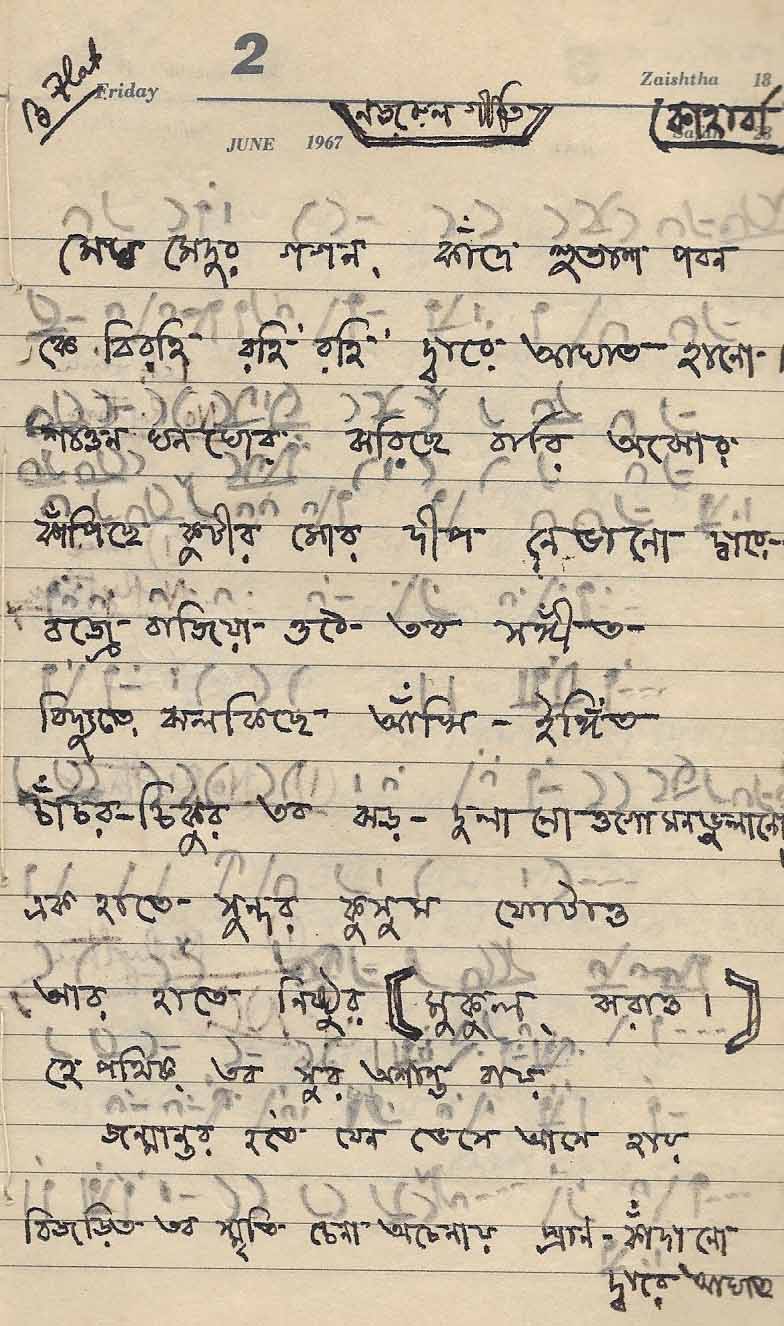 B Flat
2
Friday
Zaishtha 18
JUNE 1967
নজরুল গীতি
কাহার্বা
23
মেঘ মেদুর গগন কাঁদে হুতাশ পবন
কে বিরহি রহি' রহি' দ্বারে আঘাত হানো।
শাওন ঘনঘোর ঝরিছে বারি অঝোর
কাঁপিছে কুটীর মোর দীপ নেভানো দ্বারে-
বজ্রে বাজিয়া ওঠে তব সঙ্গীত
বিদ্যুতে ঝলকিছে আঁখি - ইঙ্গিত
চাঁচর-চিকুর তব ঝড় - দুলানো ওগো মনভুলানো
এক হাতে সুন্দর কুসুম ফোটাও
আর হাতে নিষ্ঠুর (মুকুল ঝরাও।)
হে পথিক তব সুর অশান্ত বায়
জন্মান্তর হতে যেন ভেসে আসে হায়
বিজড়িত তব স্মৃতি চেনা অচেনায় প্রান - কাঁদানো
দ্বারে আঘাত